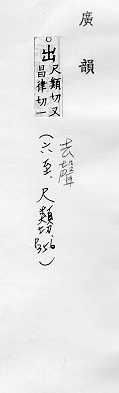 廣韻
去聲
出尺類切又昌律切一
(六至、尺類切、356)